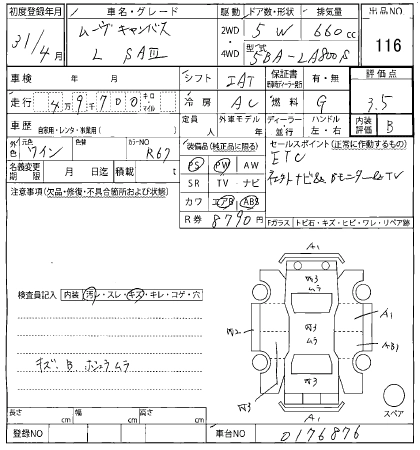 初度登録年月 車名・グレード 駆動 ドア数・形状 排気量 出品NO
31/4月 ムーヴキャンバス 2WD 5 W 660cc 116
L SAⅢ 4WD 型式 5BA-LA800S
車検 年 月 シフト IAT 保証書 有・無 評価点
走行 4万9千700 キロ・マイル 冷房 AC 燃料 G 3.5
車歴 自家用・レンタ・事業用( ) 定員 人 外車モデル 年 ディーラー 並行 ハンドル 左・右 内装評価 B
外色 元色 ワイン 色替 カラーNO R67 装備品(純正品に限る) セールスポイント(正常に作動するもの)
PS PW AW ETC
名義変更期限 月 日迄 積載 t SR TV ナビ
注意事項(欠品・修復・不具合箇所および状態) カワ エアB ABS
R券 8790円 Fガラス トビ石・キズ・ヒビ・ワレ・リペア跡
A1
検査員記入 内装 汚レ・スレ・キズ・キレ・コゲ・穴
ムラ
A1
ムラ
AB1
キズ、B ホシュウムラ
A1
スペア
長さ cm 幅 cm 高さ cm
登録NO 車台NO 0176876